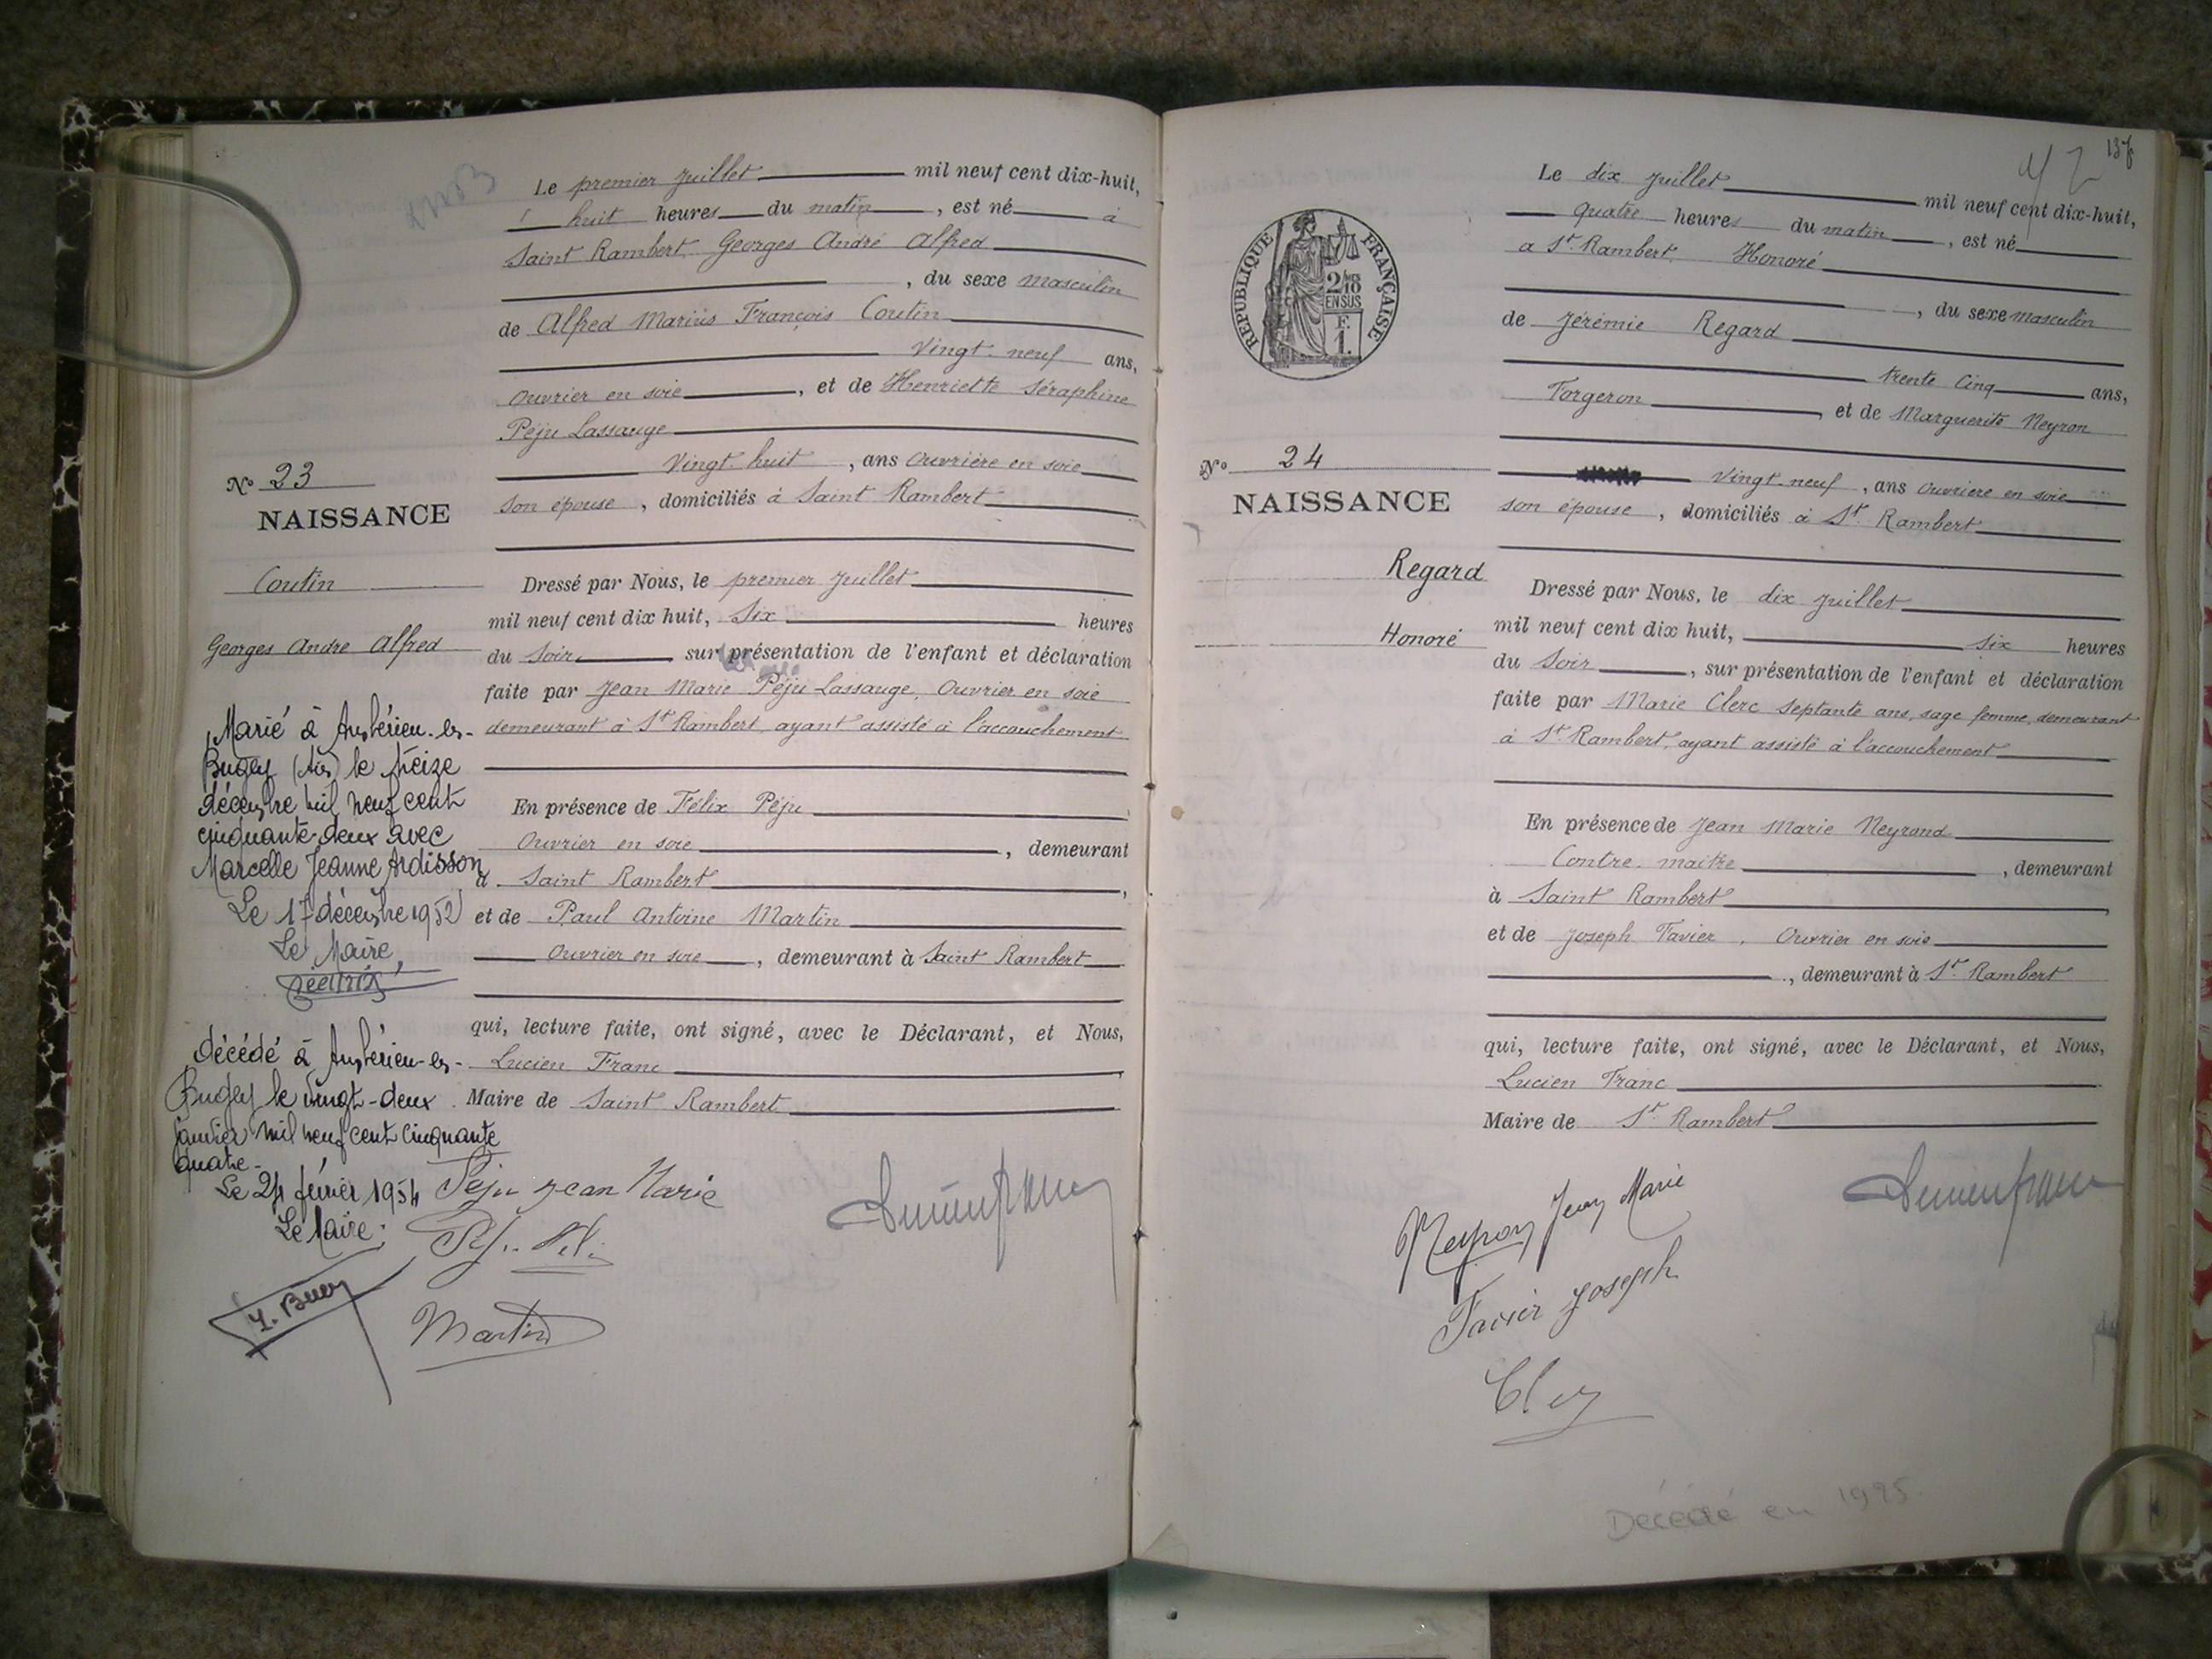 Le premier Juillet mil neuf cent dix-huit,
huit heures du matin, est né à
Saint Rambert Georges André Alfred
, du sexe masculin
de Alfred Marius François Coutin
Vingt-neuf ans,
Ouvrier en soie, et de Henriette Séraphine
Péju Lassauge
Vingt-huit, ans Ouvrière en soie
son épouse, domiciliés à Saint Rambert
N° 23
NAISSANCE
Coutin
Georges André Alfred
Dressé par Nous, le premier Juillet
mil neuf cent dix huit, Six heures
du Soir sur présentation de l'enfant et déclaration
faite par Jean Marie Péju Lassauge, Ouvrier en soie
demeurant à St Rambert, ayant assisté à l'accouchement
En présence de Félix Péju
Ouvrier en soie, demeurant
à Saint Rambert,
et de Paul Antoine Martin
Ouvrier en soie, demeurant à Saint Rambert
qui, lecture faite, ont signé, avec le Déclarant, et Nous,
Lucien Franc
Maire de Saint Rambert
Marié à Ambérieu-en-
Bugey (Ain) le treize
décembre mil neuf cent
cinquante-deux avec
Marcelle Jeanne Ardisson
Le 17 décembre 1952
Le Maire,
décédé à Ambérieu-en-
Bugey le vingt-deux
janvier mil neuf cent cinquante
quatre-
Le 24 février 1954
Le Maire:
Péju Jean Marie
Martin
137
42
REPUBLIQUE FRANÇAISE
2/10
EN SUS
F.
1.
Le dix Juillet mil neuf cent dix-huit,
quatre heures du matin, est né
à St Rambert, Honoré
, du sexe masculin
de Jérémie Regard
trente cinq ans,
Forgeron, et de Marguerite Neyron
Vingt-neuf, ans Ouvrière en soie
son épouse, domiciliés à St Rambert
N° 24
NAISSANCE
Regard
Honoré
Dressé par Nous, le dix Juillet
mil neuf cent dix huit, six heures
du Soir, sur présentation de l'enfant et déclaration
faite par Marie Clerc septante ans, sage femme, demeurant
à St Rambert, ayant assisté à l'accouchement
En présence de Jean Marie Neyrond
Contre-maître, demeurant
à Saint Rambert,
et de Joseph Favier, Ouvrier en soie
, demeurant à St Rambert
qui, lecture faite, ont signé, avec le Déclarant, et Nous,
Lucien Franc
Maire de St Rambert
Neyron Jean Marie
Favier Joseph
Décédé en 1995